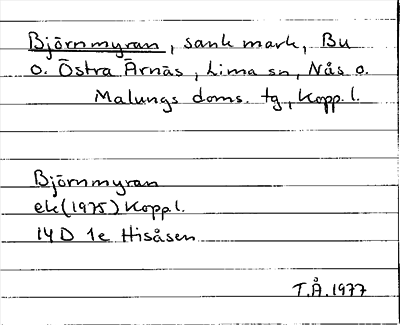 Björnmyran, sank mark, Bu
o. Östra Ärnäs, Lima sn, Nås o.
Malungs doms. tg, Kopp. l.
Björnmyran
ek (1975) Kopp. l.
14 D 1e Hisåsen
T.Å. 1977